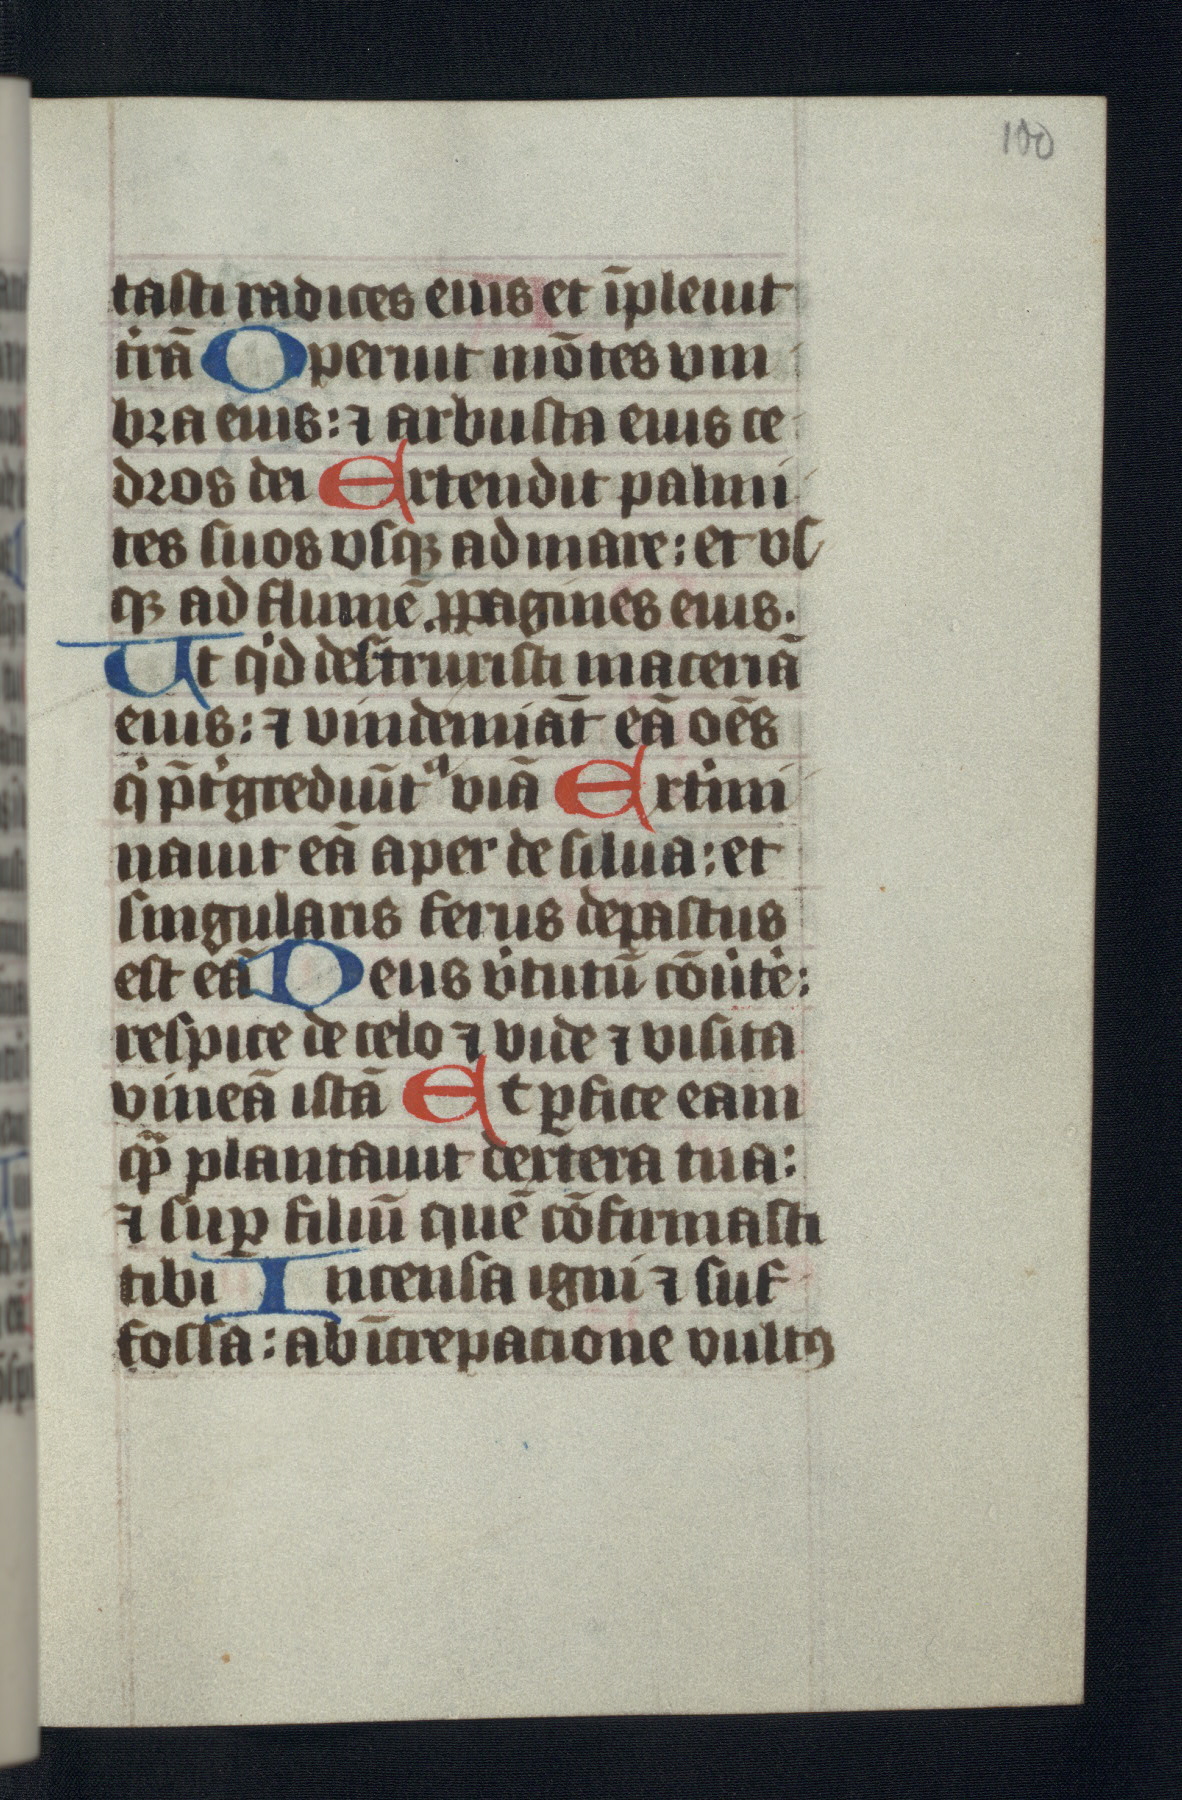 100
tasti radices eius et īpleuit
tˀrā Operuit mōtes vm
bꝛa eius: ⁊ arbusta eius ce
dꝛos dei Extendit palmi
tes suos vsqꝫ ad mare: et vs
qꝫ ad flumē ꝓpagines eius.
Ut qͥd destruxisti maceriā
eius: ⁊ vindemiāt eā oēs
qͥ p̄tˀgrediūtᵘ viā Extˀmi
nauit eā aper de silua: et
singularis ferus depastus
est eā Deus vˀtutū cōūtˀe:
respice de celo ⁊ vide ⁊ visita
vineā istā Et ꝑfice eam
qᷓ plantauit dextera tua:
⁊ suꝑ filiū quē cōfirmasti
tibi Incensa igni ⁊ suf
fossa: ab īcrepatione vultꝰ